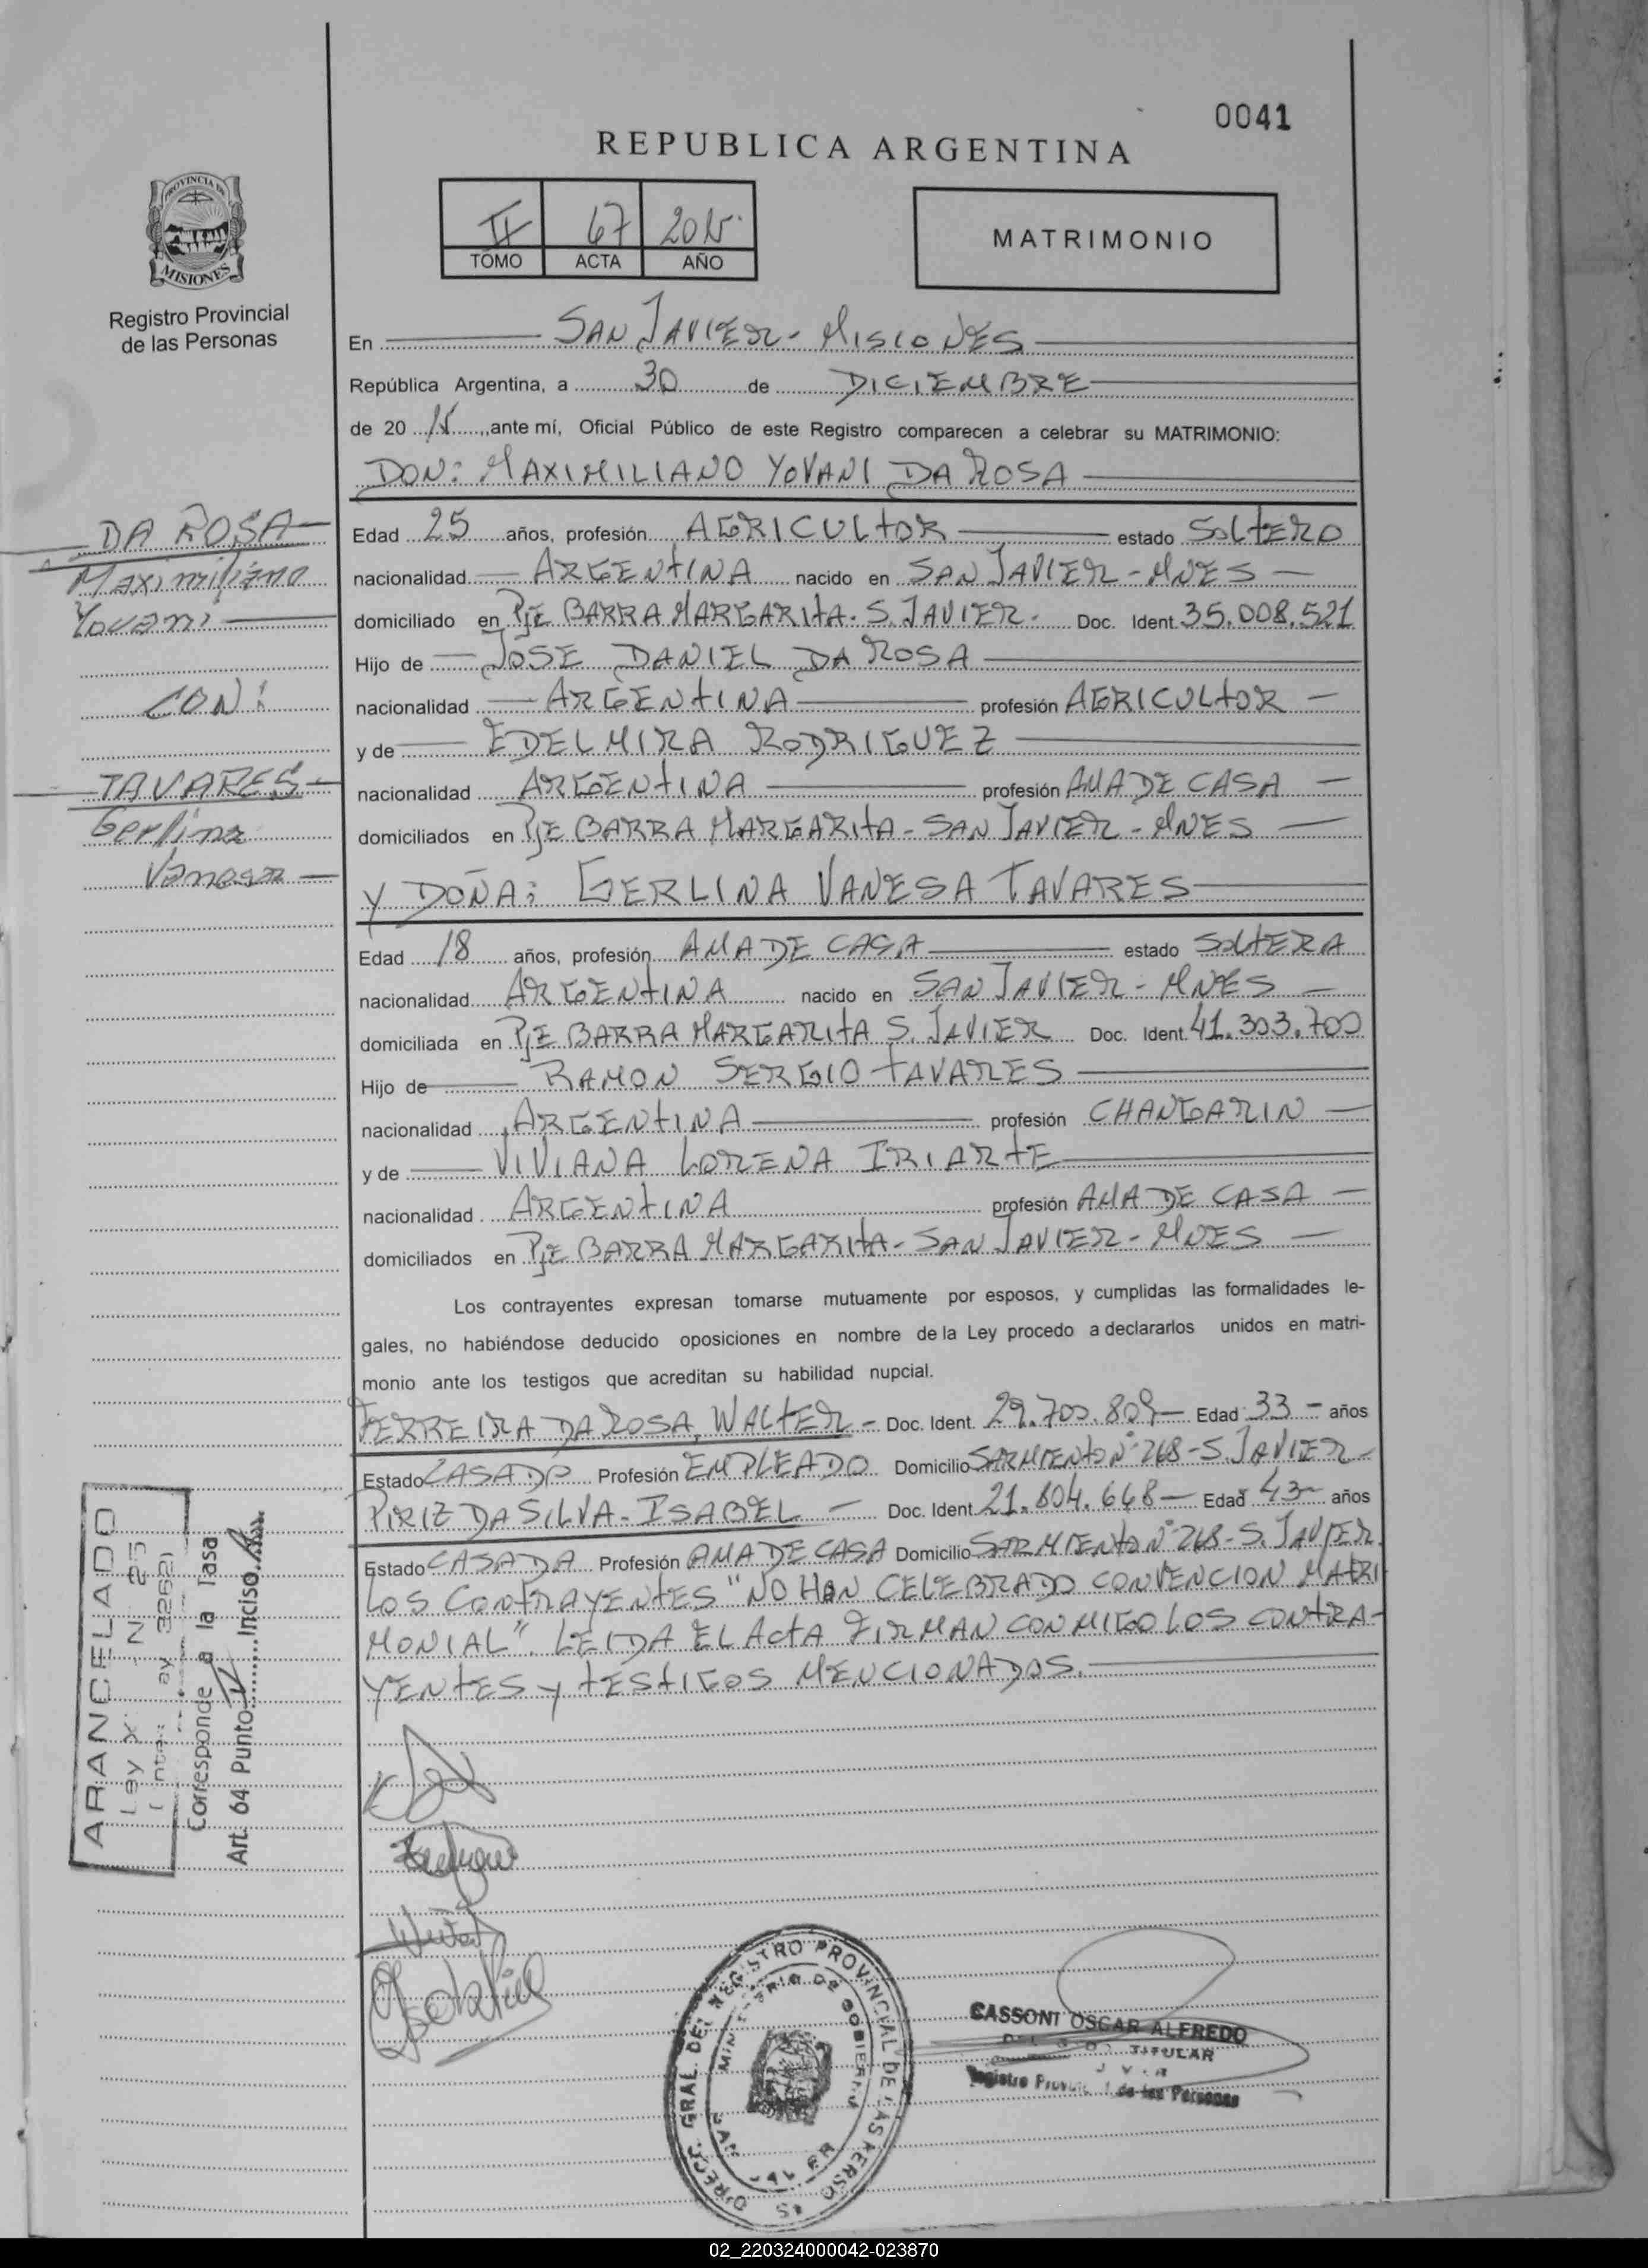 0041
REPUBLICA ARGENTINA
PROVINCIA DE
MISIONES
Registro Provincial
de las Personas
II 67 2015
TOMO ACTA AÑO
MATRIMONIO
En SAN JAVIER - MISIONES
República Argentina, a 30 de DICIEMBRE
de 20 15, ante mí, Oficial Público de este Registro comparecen a celebrar su MATRIMONIO:
DON: MAXIMILIANO YOVANI DA ROSA
DA ROSA
Maximiliano
Yovani
CON:
TAVARES
Gerlina
Vanesa
Edad 25 años, profesión AGRICULTOR estado SOLTERO
nacionalidad ARGENTINA nacido en SAN JAVIER - MNES
domiciliado en PJE BARRA MARGARITA - S. JAVIER - Doc. Ident. 35.008.521
Hijo de JOSE DANIEL DA ROSA
nacionalidad ARGENTINA profesión AGRICULTOR
y de EDELMIRA RODRIGUEZ
nacionalidad ARGENTINA profesión AMA DE CASA
domiciliados en PJE BARRA MARGARITA - SAN JAVIER - MNES
Y DOÑA: GERLINA VANESA TAVARES
Edad 18 años, profesión AMA DE CASA estado SOLTERA
nacionalidad ARGENTINA nacido en SAN JAVIER - MNES
domiciliada en PJE BARRA MARGARITA S. JAVIER Doc. Ident. 41.303.700
Hijo de RAMON SERGIO TAVARES
nacionalidad ARGENTINA profesión CHANGARIN
y de VIVIANA LORENA IRIARTE
nacionalidad ARGENTINA profesión AMA DE CASA
domiciliados en PJE BARRA MARGARITA - SAN JAVIER - MNES
Los contrayentes expresan tomarse mutuamente por esposos, y cumplidas las formalidades le-
gales, no habiéndose deducido oposiciones en nombre de la Ley procedo a declararlos unidos en matri-
monio ante los testigos que acreditan su habilidad nupcial.
FERREIRA DA ROSA, WALTER - Doc. Ident. 29.700.809 - Edad 33 - años
Estado CASADO Profesión EMPLEADO Domicilio SARMIENTO N° 268 - S. JAVIER -
PIRIZ DA SILVA - ISABEL - Doc. Ident. 21.804.648 - Edad 43 - años
Estado CASADA Profesión AMA DE CASA Domicilio SARMIENTO N° 268 - S. JAVIER.
LOS CONTRAYENTES "NO HAN CELEBRADO CONVENCION MATRI
MONIAL". LEIDA EL ACTA FIRMAN CONMIGO LOS CONTRA-
YENTES Y TESTIGOS MENCIONADOS.
ARANCELADO
Ley N 25
3262)
Corresponde a la Tasa
Art. 64 Punto Inciso
DIRECC. GRAL. DEL REGISTRO PROVINCIAL DE LAS PERSONAS
MINISTERIO DE GOBIERNO
SAN JAVIER
CASSONI OSCAR ALFREDO
TITULAR
Registro Provincial de las Personas
02_220324000042-023870